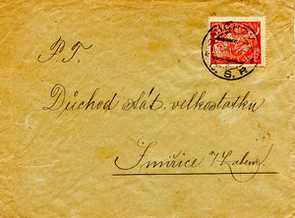 P. T.
Důchod stát. velkostatku
Smiřice n/Labem
Č. S. R.